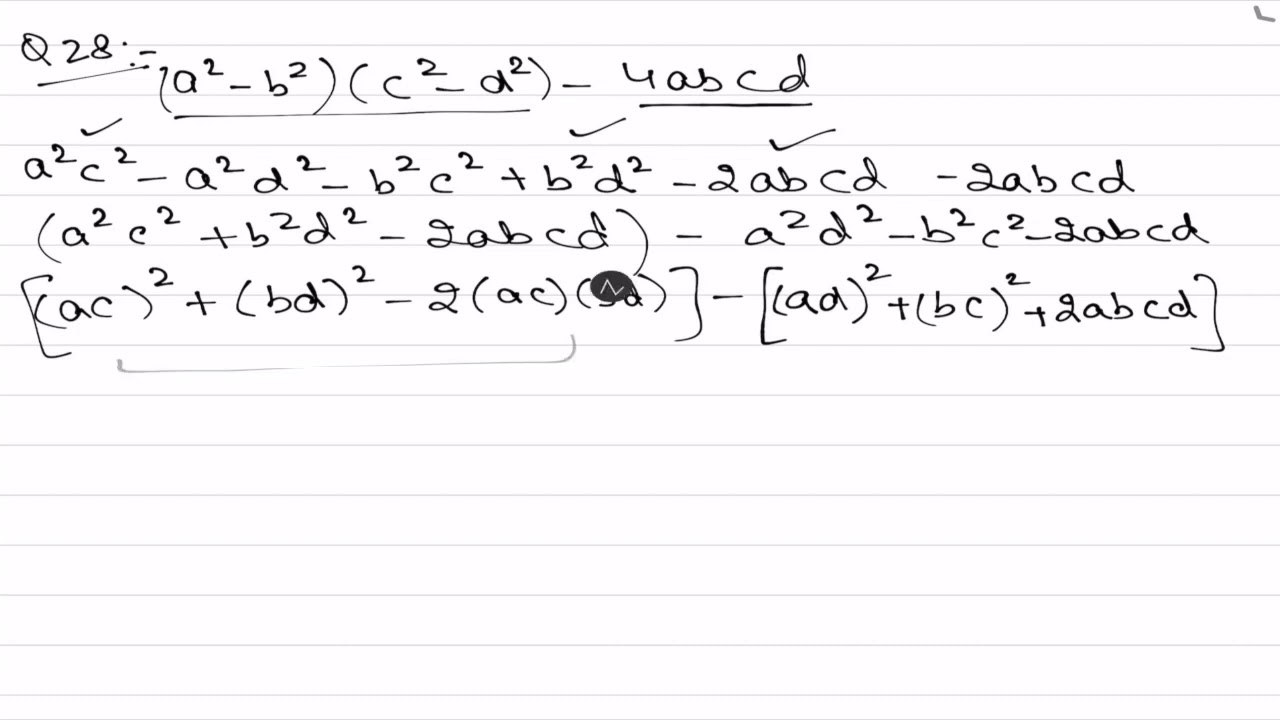 Q 28 :-
(a² - b²)(c² - d²) - 4abcd
a²c² - a²d² - b²c² + b²d² - 2abcd - 2abcd
(a²c² + b²d² - 2abcd) - a²d² - b²c² - 2abcd
[(ac)² + (bd)² - 2(ac)( d)] - [(ad)² + (bc)² + 2abcd]